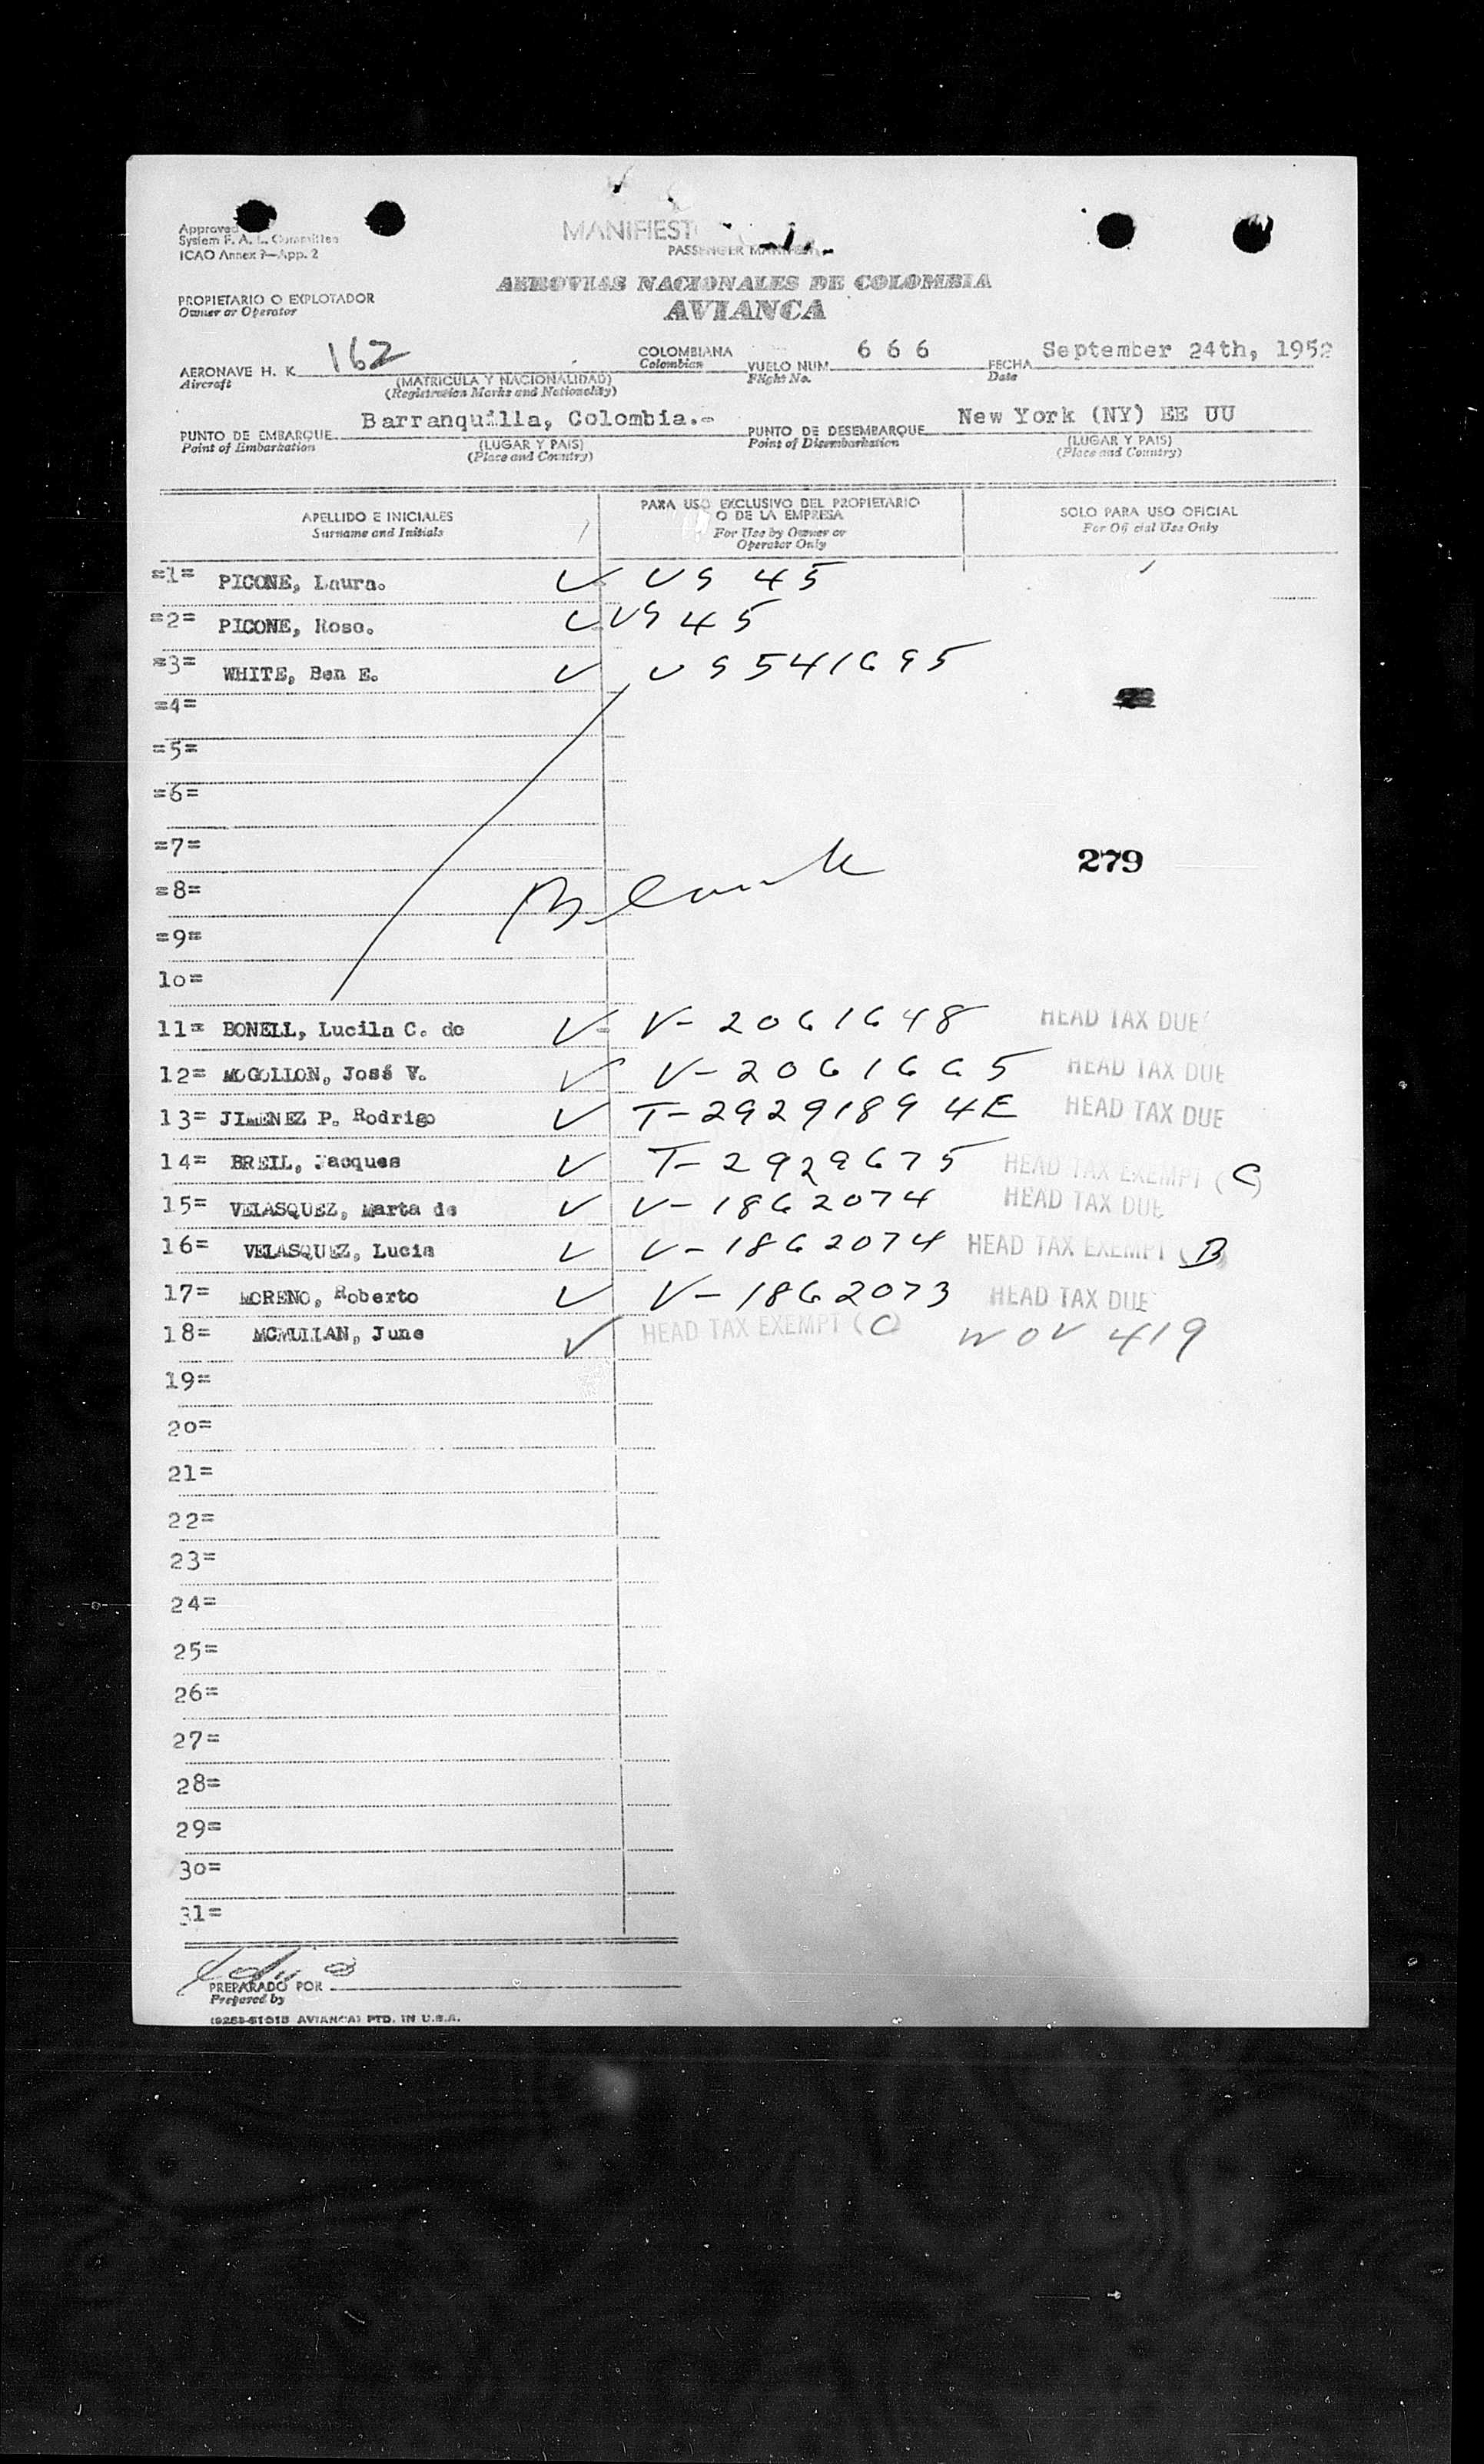 Approved
System F. A. L. Committee
ICAO Annex 9—App. 2
MANIFIESTO
PASSENGER MANIFEST
PROPIETARIO O EXPLOTADOR
Owner or Operator
AEROVIAS NACIONALES DE COLOMBIA
AVIANCA
AERONAVE H. K. 162 COLOMBIANA VUELO NUM. 6 6 6 FECHA September 24th, 1952
Aircraft (MATRICULA Y NACIONALIDAD) Colombian Flight No. Date
(Registration Marks and Nationality)
PUNTO DE EMBARQUE Barranquilla, Colombia.- PUNTO DE DESEMBARQUE New York (NY) EE UU
Point of Embarkation (LUGAR Y PAIS) Point of Disembarkation (LUGAR Y PAIS)
(Place and Country) (Place and Country)
APELLIDO E INICIALES PARA USO EXCLUSIVO DEL PROPIETARIO SOLO PARA USO OFICIAL
Surname and Initials O DE LA EMPRESA For Official Use Only
For Use by Owner or
Operator Only
=1= PICONE, Laura. ✓ US 45
=2= PICONE, Rose. ✓ US 45
=3= WHITE, Ben E. ✓ US 541695
=4=
=5=
=6=
=7= 279
=8= Blank
=9=
10=
11= BONELL, Lucila C. de ✓ V-2061648 HEAD TAX DUE
12= MOGOLLON, José V. ✓ V-2061665 HEAD TAX DUE
13= JIMENEZ P. Rodrigo ✓ T-2929189 4E HEAD TAX DUE
14= BREIL, Jacques ✓ T-2929675 HEAD TAX EXEMPT (C)
15= VELASQUEZ, Marta de ✓ V-1862074 HEAD TAX DUE
16= VELASQUEZ, Lucia ✓ V-1862074 HEAD TAX EXEMPT (B)
17= MORENO, Roberto ✓ V-1862073 HEAD TAX DUE
18= MCMULLAN, June ✓ HEAD TAX EXEMPT (C) WOV 419
19=
20=
21=
22=
23=
24=
25=
26=
27=
28=
29=
30=
31=
PREPARADO POR
Prepared by
(9253-5101B AVIANCA) PTD. IN U.S.A.